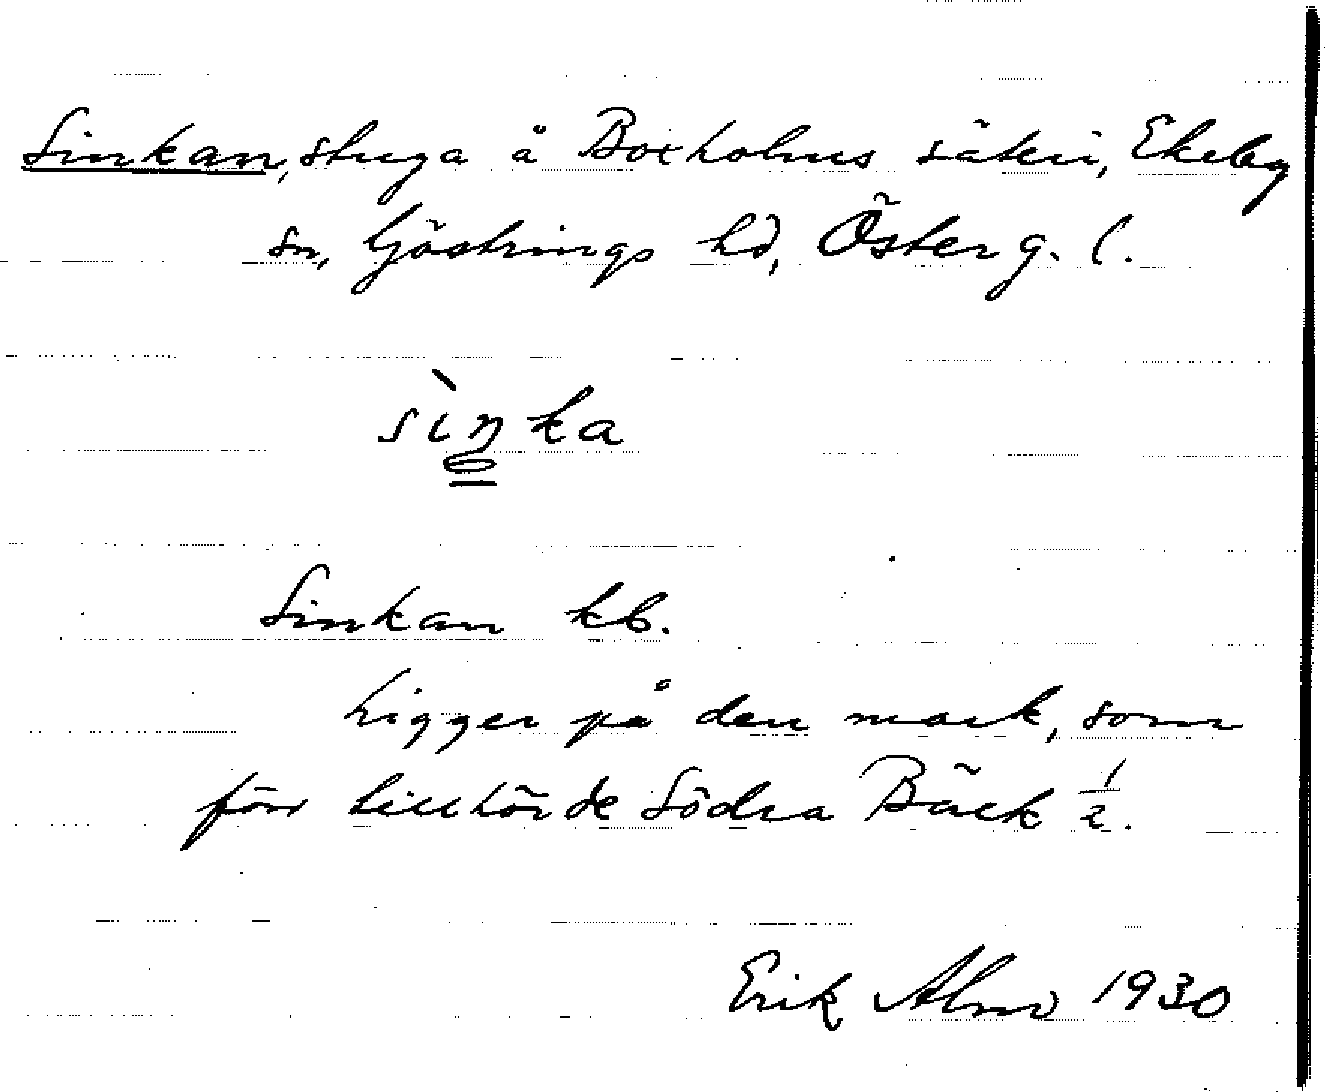 Sinkan, stuga å Boxholms säteri, Ekeby
sn, Göstrings hd, Österg. l.
sìŋka
Sinkan kb.
Ligger på den mark, som
förr tillhörde Södra Bäck 1/2.
Erik Alm 1930